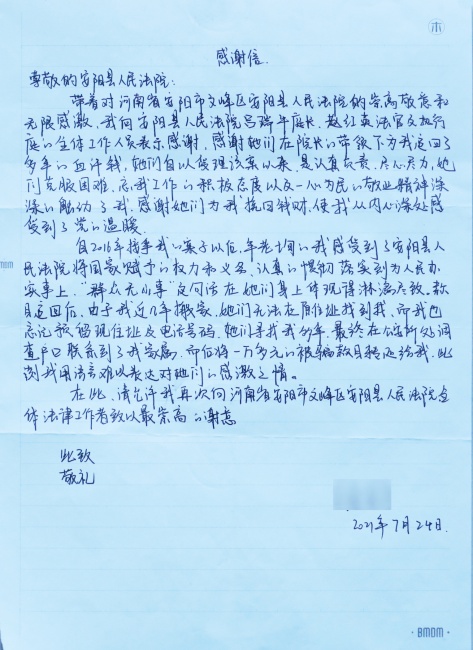 木
感谢信
尊敬的安阳县人民法院:
带着对河南省安阳市文峰区安阳县人民法院的崇高敬意和
无限感激,我向安阳县人民法院吕瑞平庭长、赵红英法官及执行
庭的全体工作人员表示感谢,感谢她们在院长的带领下为我追回了
多年的血汗钱,她们自从受理该案以来,是认真负责,尽心尽力,她
们克服困难,忘我工作的积极态度以及一心为民的敬业精神深
深的触动了我,感谢她们为我挽回钱财,使我从内心深处感
受到了党的温暖。
自2016年接手我的案子以后,年老的我感受到了安阳县人
民法院将国家赋予的权力和义务,认真的贯彻落实到为人民办
实事上,"群众无小事"这句话在她们身上体现得淋漓尽致。款
目追回后,由于我近几年搬家,她们无法在原住址找到我,而我也
忘记预留现住址及电话号码,她们寻找我多年,最终在派所处调
查户口联系到了我家属,而后将一万多元的被骗款目转还给我,此
刻我用语言难以表达对她们的感激之情。
在此,请允许我再次向河南省安阳市文峰区安阳县人民法院全
体法律工作者致以最崇高的谢意
此致
敬礼
2021年7月24日.
BMDM